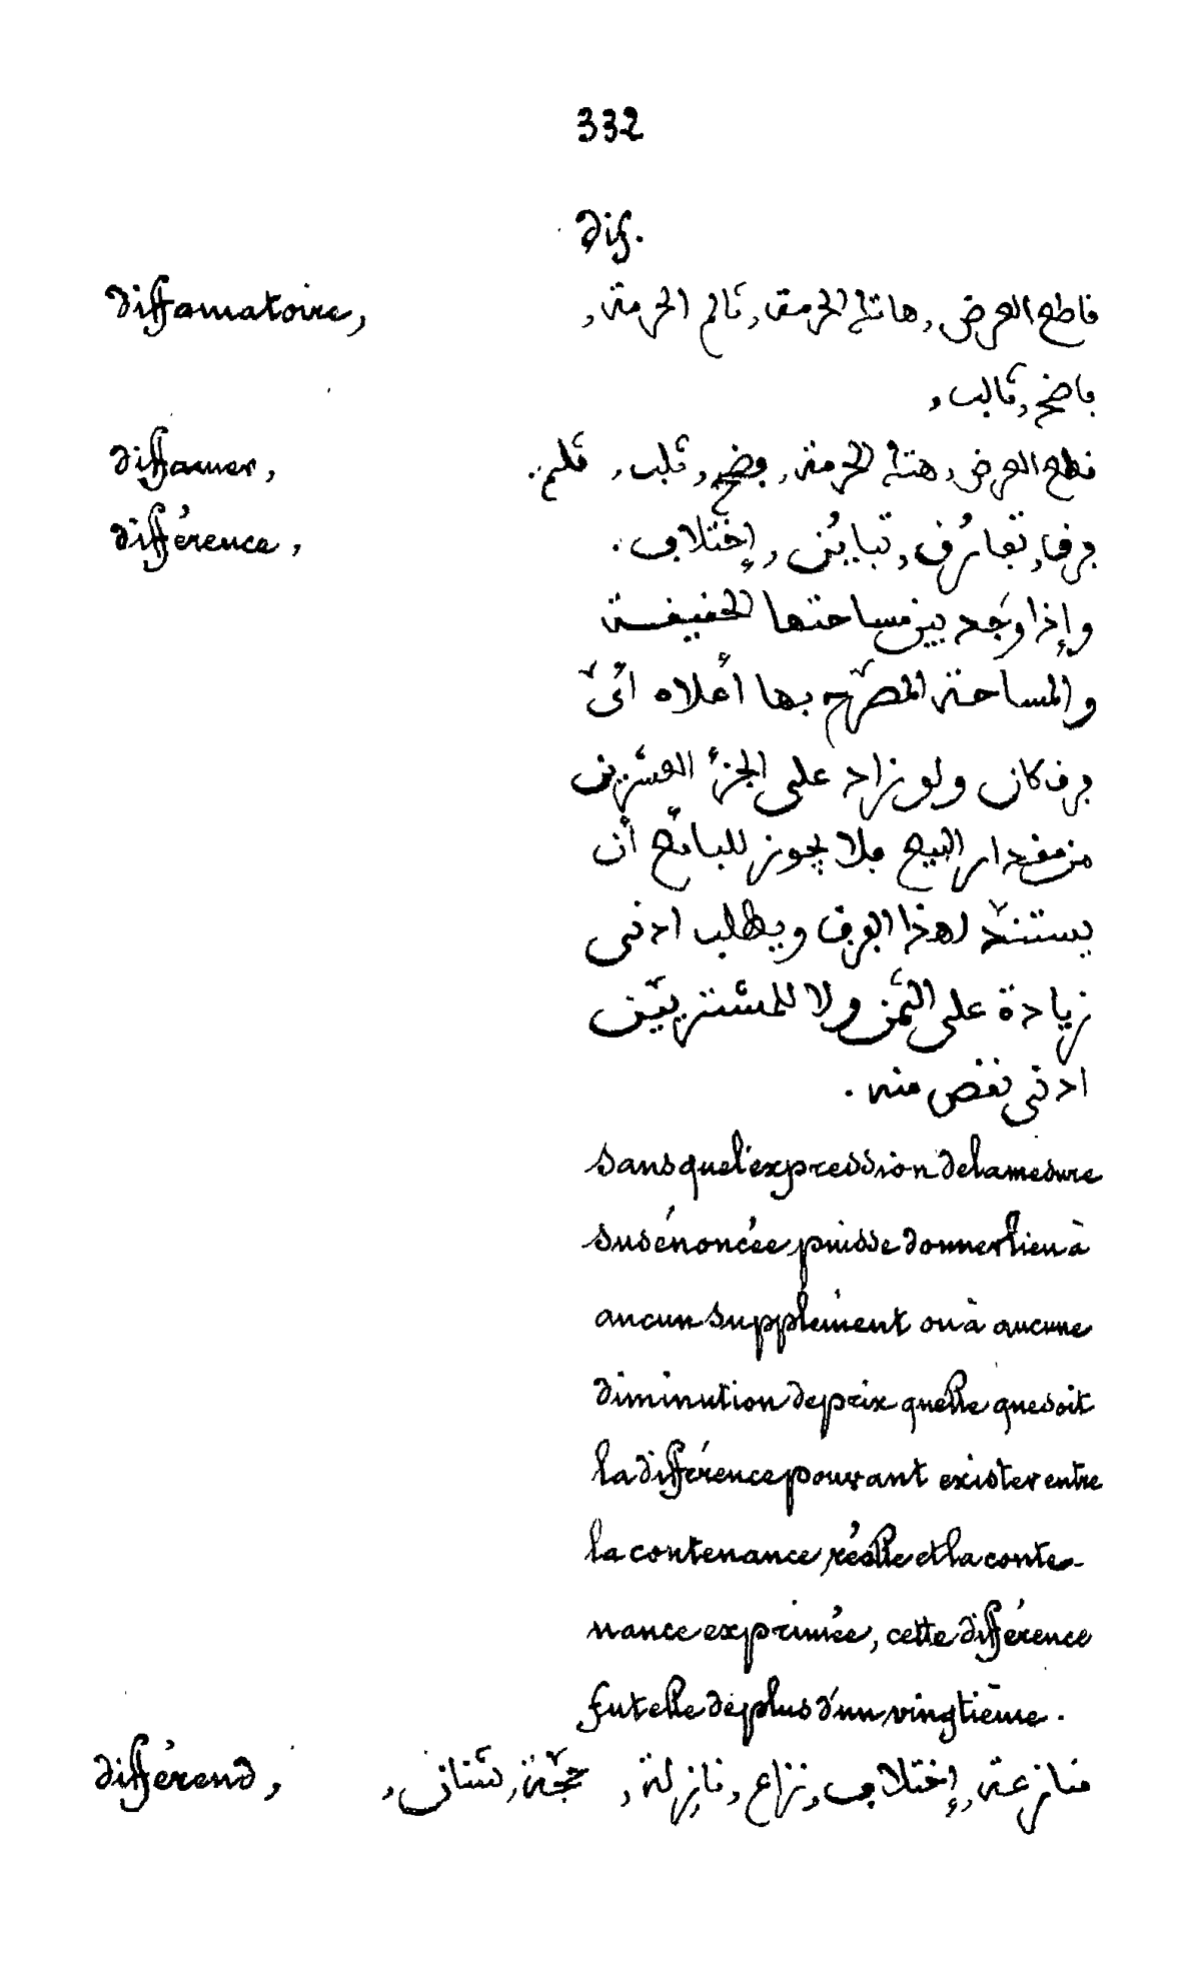 332
dif.
diffamatoire, قاطع العرض, هاتك الحرمة, ثالم الحرمة,
فاضح, ثالب,
diffamer, قطع العرض, هتك الحرمة, فضح, ثلب, ثلم.
différence, فرق, تفارُق, تبايُن, إختلاف.
وإذا وجَد بين مساحتها الحقيقية
والمساحة المصرّح بها أعلاه ائىّ
فرق كان ولو زاد على الجزء العشرين
من مقدار البيع فلا يجوز للبائع أن
يستندَ لهذا الفرق ويطلب ادنى
زيادة على الثمن ولا للمشتريَين
ادنى نقص منه.
sans que l'expression de la mesure
susénoncée puisse donner lieu à
aucun supplément ou à aucune
diminution de prix quelle que soit
la différence pouvant exister entre
la contenance réelle et la conte-
nance exprimée, cette différence
fut elle de plus d'un vingtième.
différend, منازعة, إختلاف, نزاع, نازِلة, حجّة, شنآن,